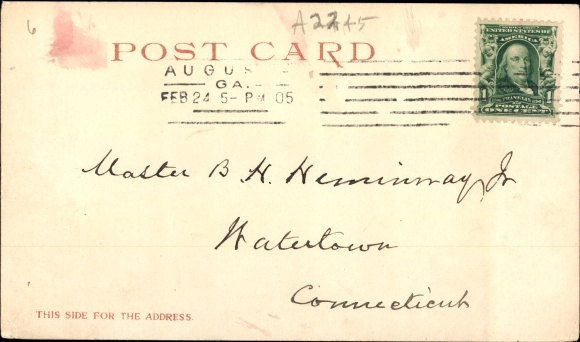 6
A2245
POST CARD
AUGUSTA
GA.
FEB 24 5-PM 05
UNITED STATES OF
AMERICA
FRANKLIN
1 POSTAGE 1
ONE CENT
Master B. H. Heminway, Jr
Watertown
Connecticut
THIS SIDE FOR THE ADDRESS.